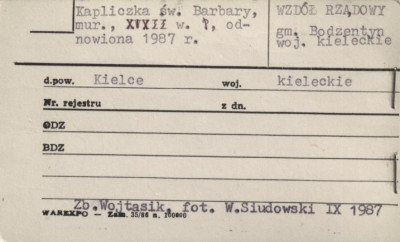 Kapliczka św. Barbary,
mur., XVIII w. ?, od-
nowiona 1987 r.
WZDÓŁ RZĄDOWY
gm. Bodzentyn
woj. kieleckie
d.pow. Kielce woj. kieleckie
Nr. rejestru z dn.
ODZ
BDZ
Zb.Wojtasik, fot. W.Siudowski IX 1987
WAREXPO — Zam. 35/86 n. 100000